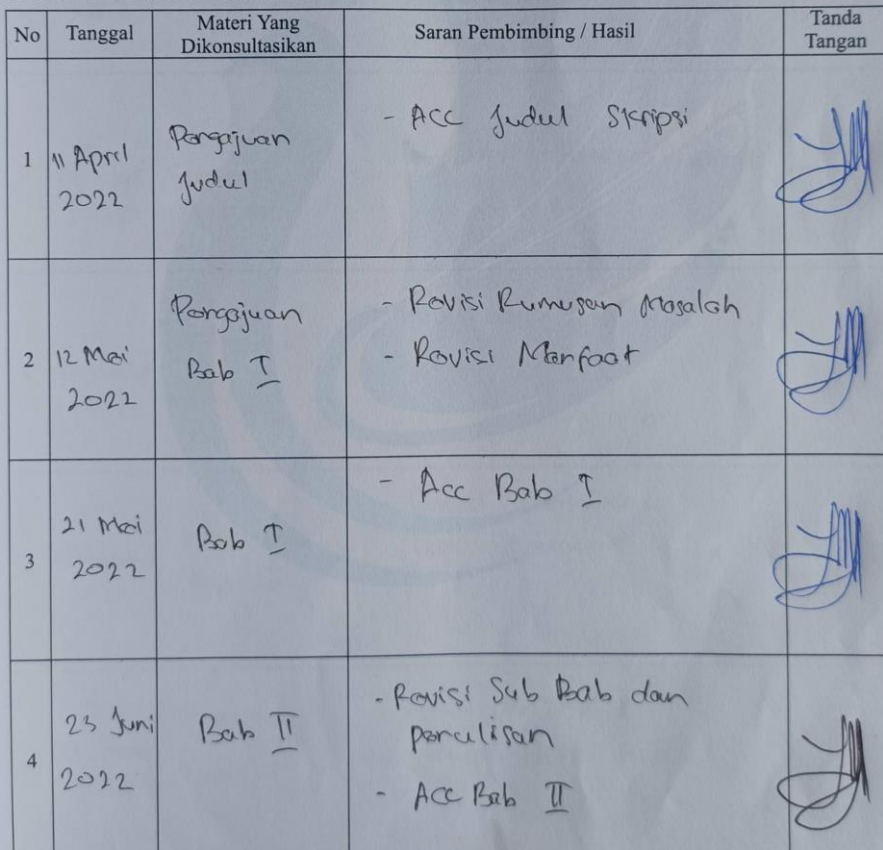 No Tanggal Materi Yang Dikonsultasikan Saran Pembimbing / Hasil Tanda Tangan
1
11 April
2022
Pengajuan
Judul
- Acc Judul Skripsi
2
12 Mei
2022
Pengajuan
Bab I
- Revisi Rumusan Masalah
- Revisi Manfaat
3
21 Mei
2022
Bab I
- Acc Bab I
4
23 Juni
2022
Bab II
- Revisi Sub Bab dan
penulisan
- Acc Bab II